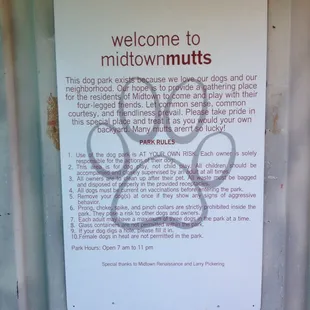 welcome to
midtownmutts
This dog park exists because we love our dogs and our
neighborhood. Our hope is to provide a gathering place
for the residents of Midtown to come and play with their
four-legged friends. Let common sense, common
courtesy, and friendliness prevail. Please take pride in
this special place and treat it as you would your own
backyard. Many mutts aren't so lucky!
PARK RULES
1. Use of the dog park is AT YOUR OWN RISK. Each owner is solely
responsible for the actions of their dog.
2. This area is for dog play, not child play. All children should be
accompanied and closely supervised by an adult at all times.
3. All owners are to clean up after their pet. All waste must be bagged
and disposed of properly in the provided receptacles.
4. All dogs must be current on vaccinations before entering the park.
5. Remove your dog(s) at once if they show any signs of aggressive
behavior.
6. Prong, choke, spike, and pinch collars are strictly prohibited inside the
park. They pose a risk to other dogs and owners.
7. Each adult may have a maximum of them dogs in the park at a time.
8. Glass containers are not permitted within the park.
9. If your dog digs a hole, please fill it in.
10. Female dogs in heat are not permitted in the park.
Park Hours: Open 7 am to 11 pm
Special thanks to Midtown Renaissance and Larry Pickering